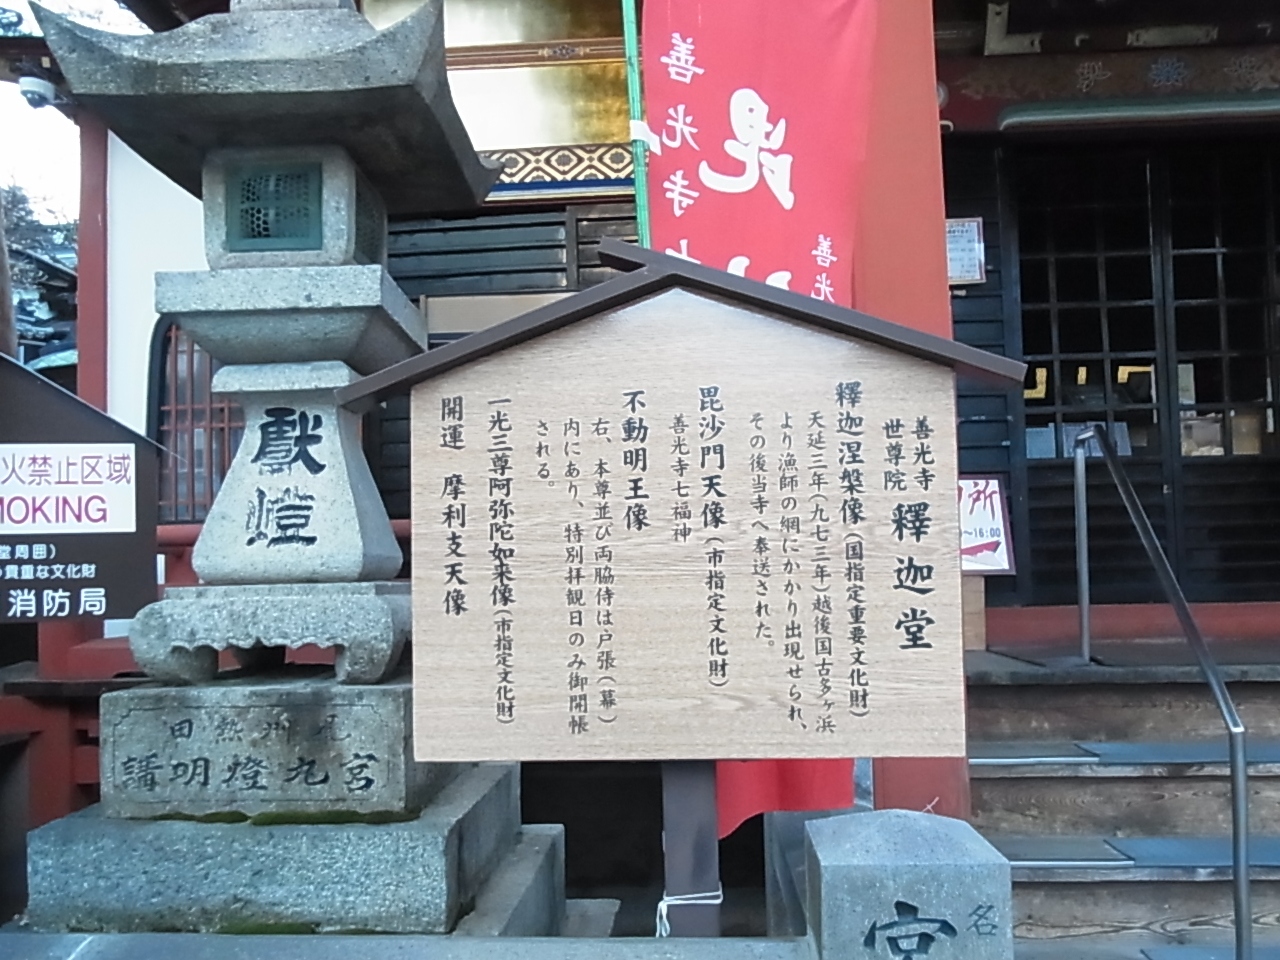 善光寺
世尊院
釋迦堂
釋迦涅槃像(国指定重要文化財)
天延三年(九七三年)越後国古多ヶ浜
より漁師の網にかかり出現せられ、
その後当寺へ奉送された。
毘沙門天像(市指定文化財)
善光寺七福神
不動明王像
右、本尊並び両脇侍は戸張(幕)
内にあり、特別拝観日のみ御開帳
される。
一光三尊阿弥陀如来像(市指定文化財)
開運 摩利支天像
善光寺七
毘
善光
献燈
尾州熱田
宮九燈明講
火禁止区域
MOKING
堂周囲)
貴重な文化財
消防局
所
~16:00
名
宮